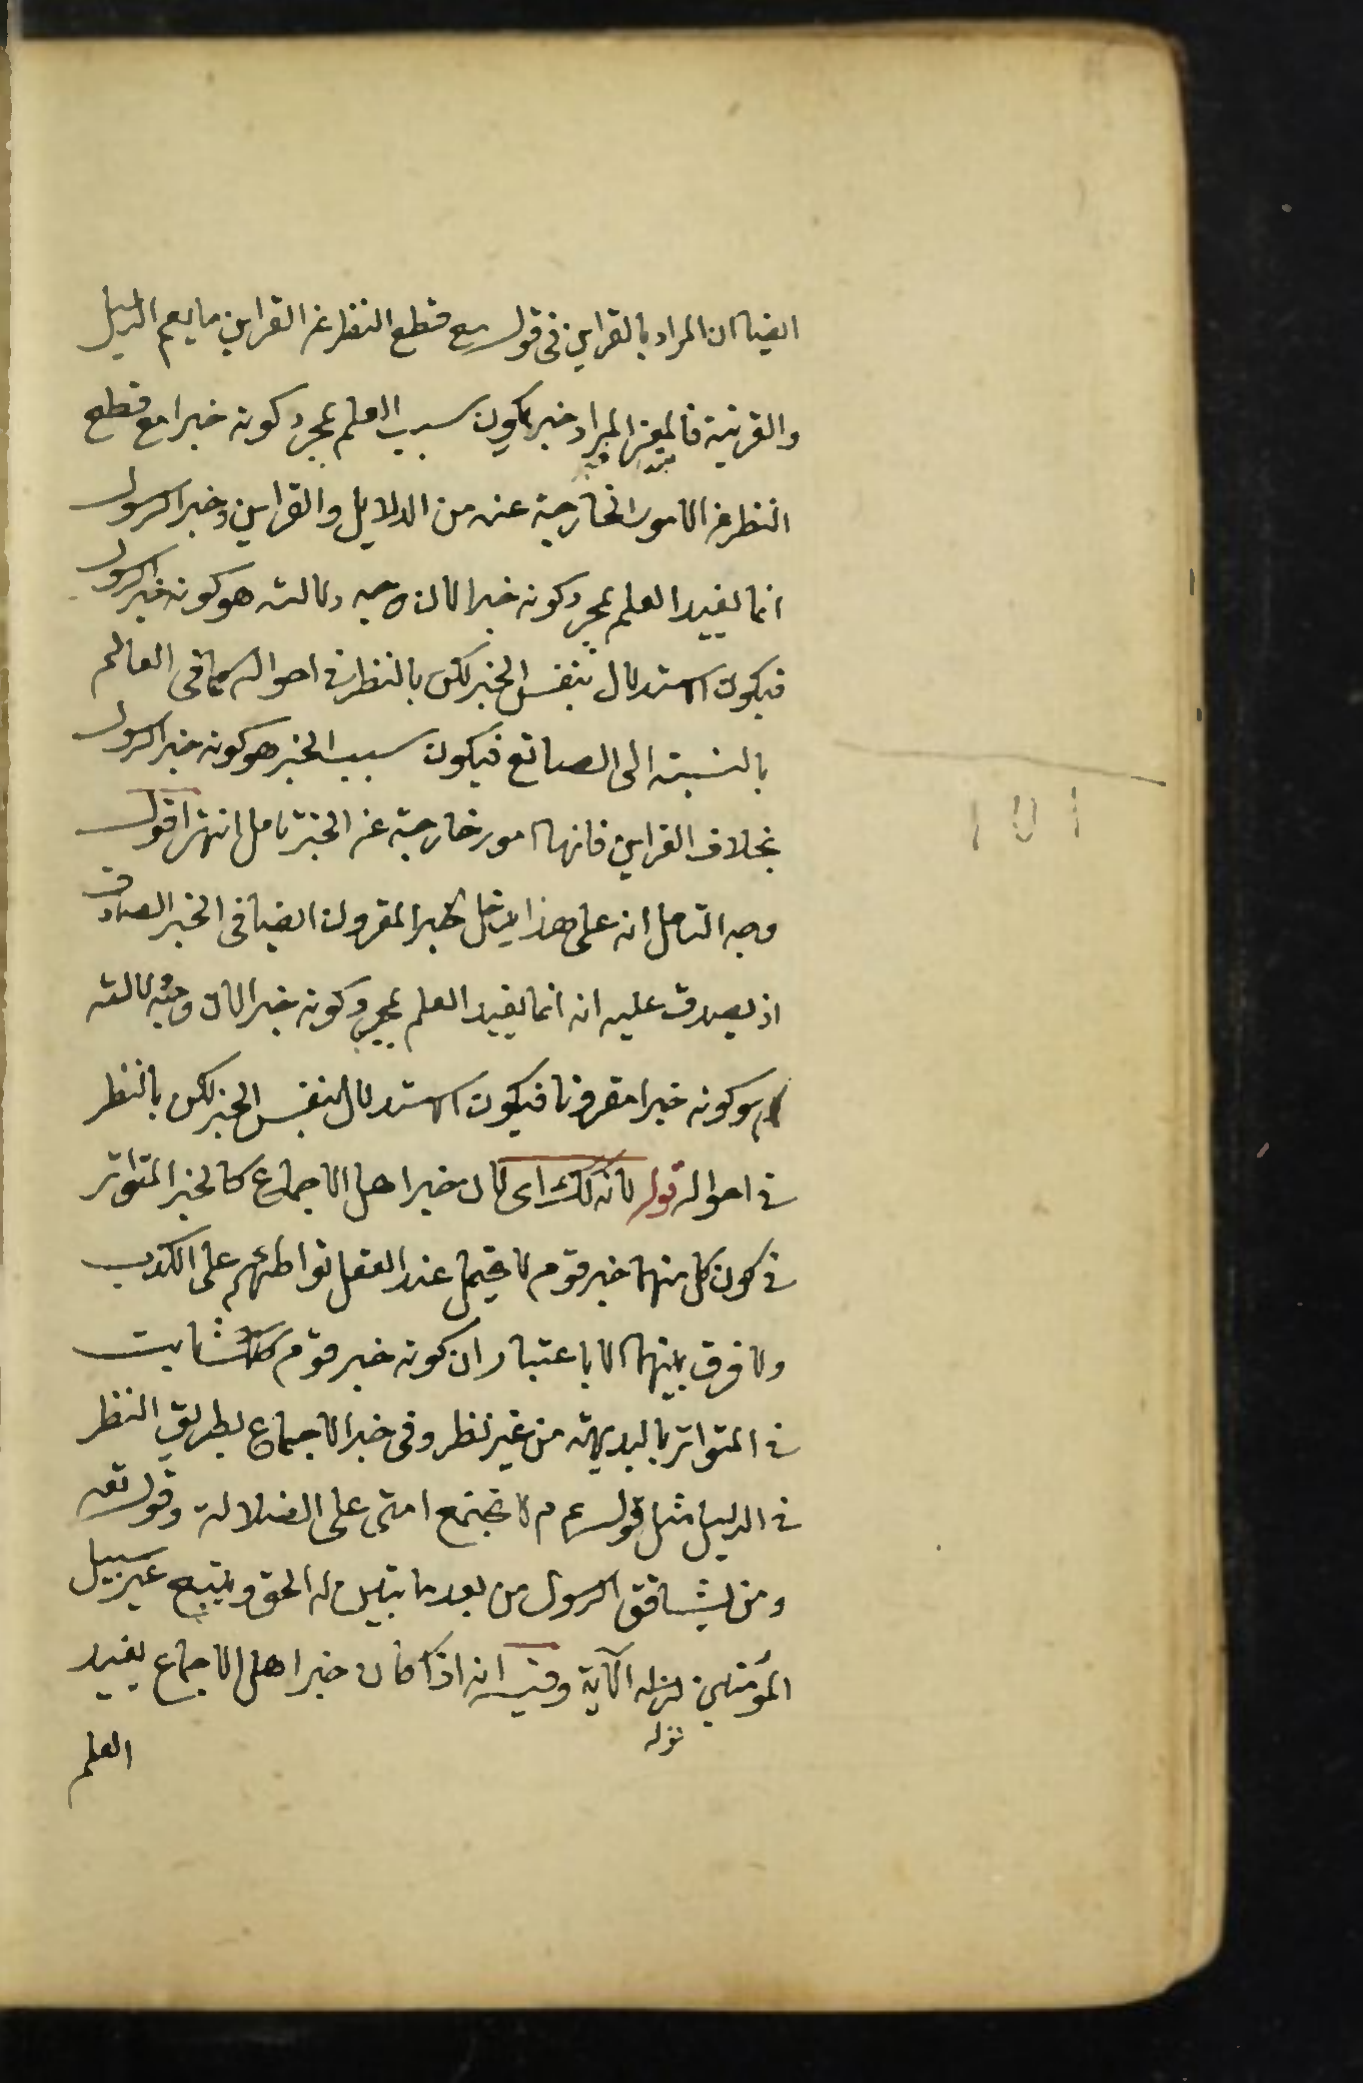 ايضا ان المراد بالقراين فى قوله مع قطع النظر عن القراين ما يعم الدليل
والقرينة فالمعنى المراد خبر يكون سبب العلم بمجرد كونه خبرا مع قطع
النظر عن الامور الخارجية عنه من الدلايل والقراين وخبر الرسول
انما يفيد العلم بمجرد كونه خبرا لان وجه دلالته هو كونه خبر الرسول
فيكون الاستدلال بنفس الخبر لكن بالنظر فى احواله كما فى العالم
بالنسبة الى الصانع فيكون سبب الخبر هو كونه خبر الرسول
بخلاف القراين فانها امور خارجية عن الخبر تامل انتهى اقول
وجه التامل انه على هذا يدخل الخبر المقرون ايضا فى الخبر الصادق
اذ يصدق عليه انه انما يفيد العلم بمجرد كونه خبرا لان وجه دلالته
هو كونه خبرا مقرونا فيكون الاستدلال بنفس الخبر لكن بالنظر
فى احواله قوله لانه كذلك اى لان خبر اهل الاجماع كالخبر المتواتر
فى كون كل منهما خبر قوم لا يحتمل عند العقل تواطئهم على الكذب
ولا فرق بينهما الا باعتبار ان كونه خبر قوم كذلك ثابت
فى المتواتر بالبديهة من غير نظر وفى خبر الاجماع بطريق النظر
فى الدليل مثل قوله عم م لا تجتمع امتى على الضلالة وقوله تعه
ومن يشاقق الرسول من بعد ما تبين له الحق ويتبع غير سبيل
المؤمنين نوله الآية وفيه انه اذا كان خبر اهل الاجماع يفيد
نوله
العلم